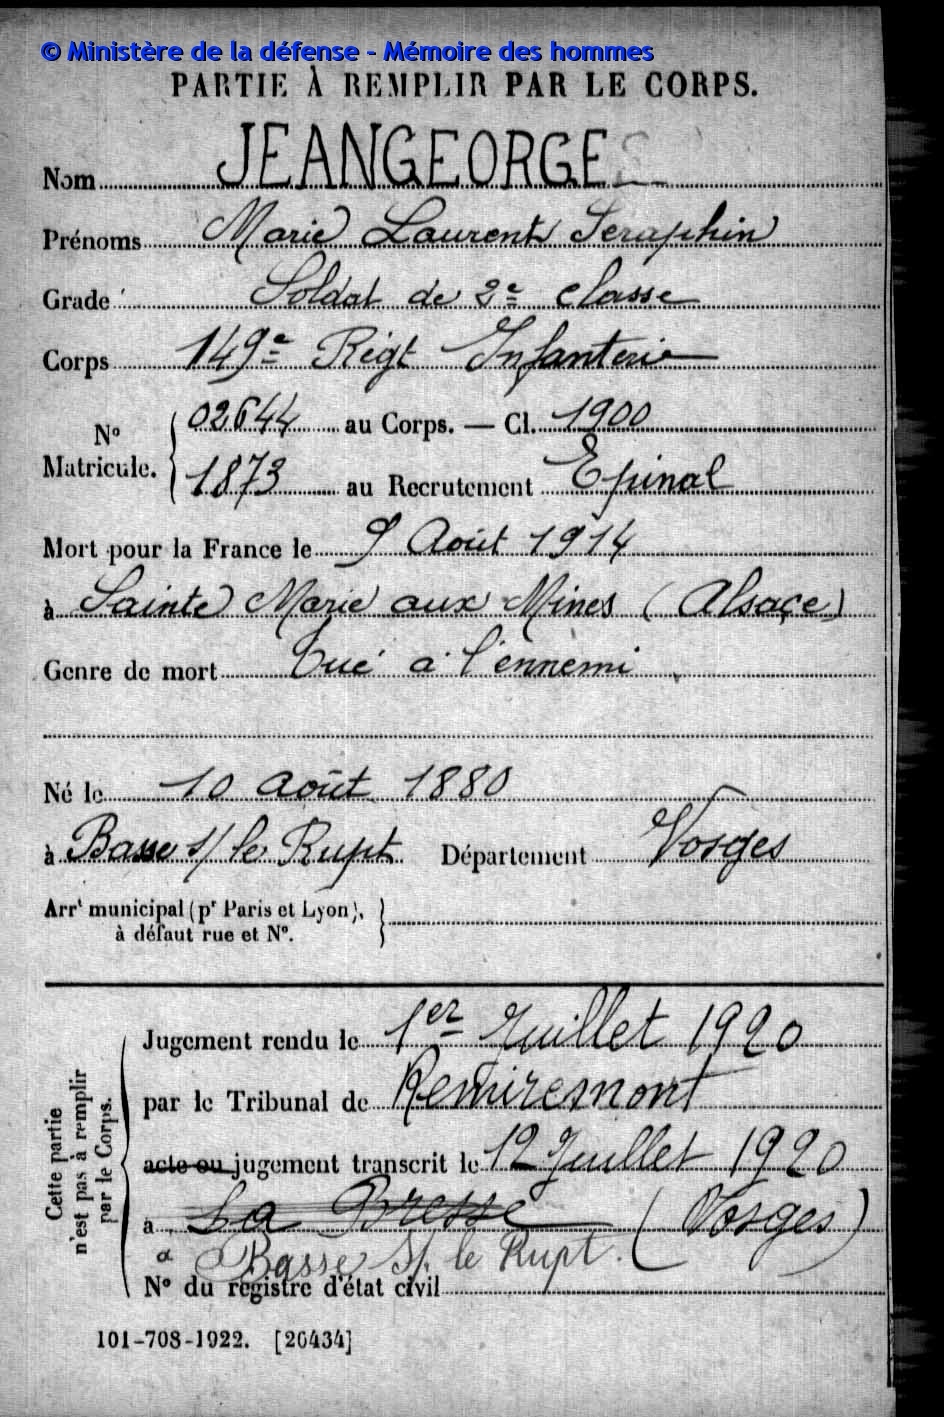 © Ministère de la défense - Mémoire des hommes
PARTIE À REMPLIR PAR LE CORPS.
Nom JEANGEORGE
Prénoms Marie Laurent Seraphin
Grade Soldat de 2e classe
Corps 149e Régt Infanterie
No Matricule. 02644 au Corps. — Cl. 1900
1873 au Recrutement Epinal
Mort pour la France le 9 Août 1914
à Sainte Marie aux Mines (Alsace)
Genre de mort Tué à l'ennemi
Né le 10 Août 1880
à Basse s/ le Rupt Département Vosges
Arrt municipal (pr Paris et Lyon),
à défaut rue et No.
Cette partie
n'est pas à remplir
par le Corps.
Jugement rendu le 1er Juillet 1920
par le Tribunal de Remiremont
acte ou jugement transcrit le 12 Juillet 1920
à La Bresse (Vosges)
a Basse s/. le Rupt.
No du registre d'état civil
101-708-1922. [26434]